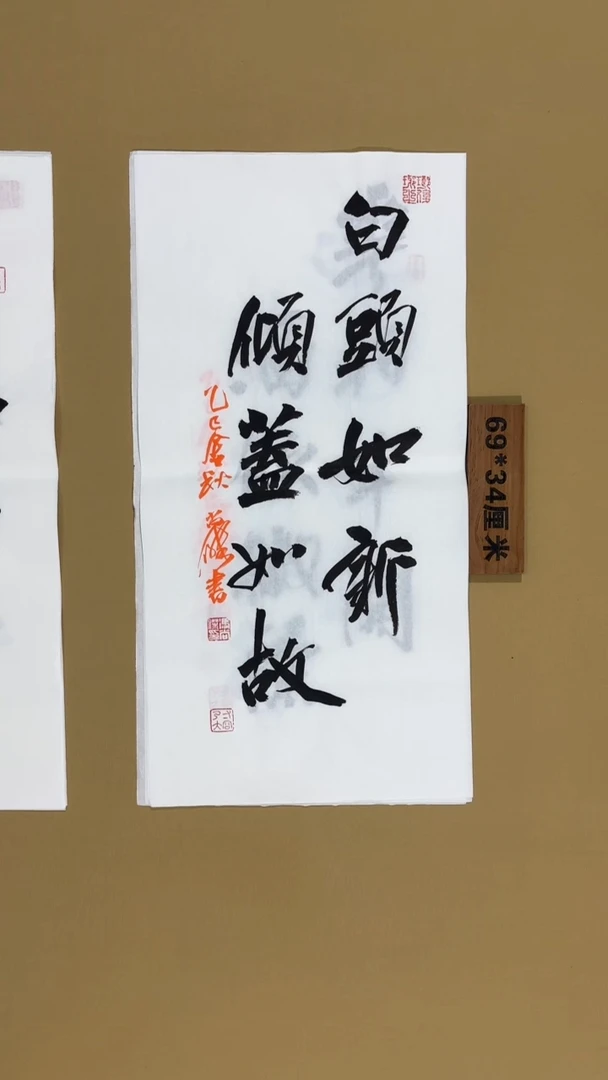 白頭如新
傾蓋如故
乙巳
書
69*34厘米